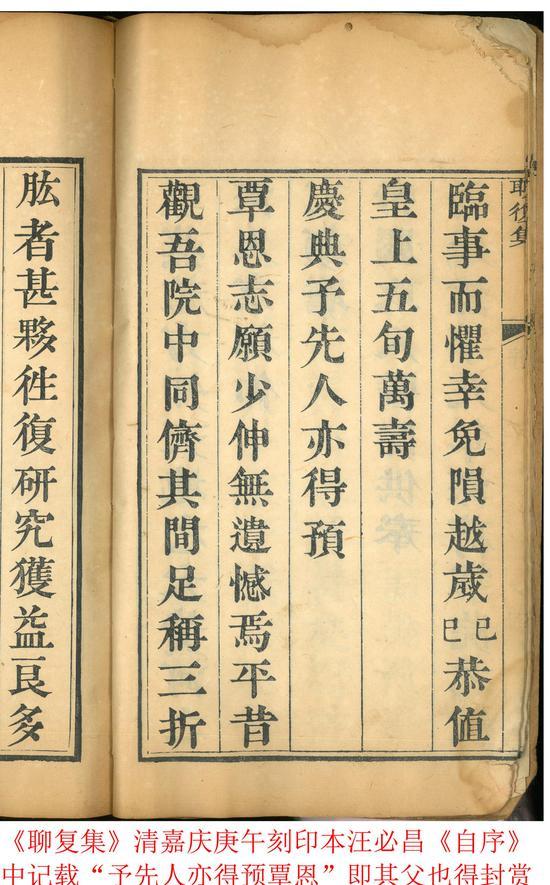 聊復集
臨事而懼幸免隕越歲己巳恭值
皇上五旬萬壽
慶典予先人亦得預
覃恩志願少伸無遺憾焉平昔
觀吾院中同儕其間足稱三折
肱者甚夥徃復研究獲益良多
《聊复集》清嘉庆庚午刻印本汪必昌《自序》
中记载“予先人亦得预覃恩”即其父也得封赏